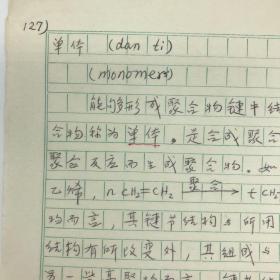 127)
单体 (dan ti)
(monomers)
能够形成聚合物键中结
合物称为单体。是合成聚合
聚合反应而生成聚合物。如
乙烯, n CH2=CH2 聚合 → t CH2
均而言, 其键节结构与所用
结构有所改变外, 其组成与